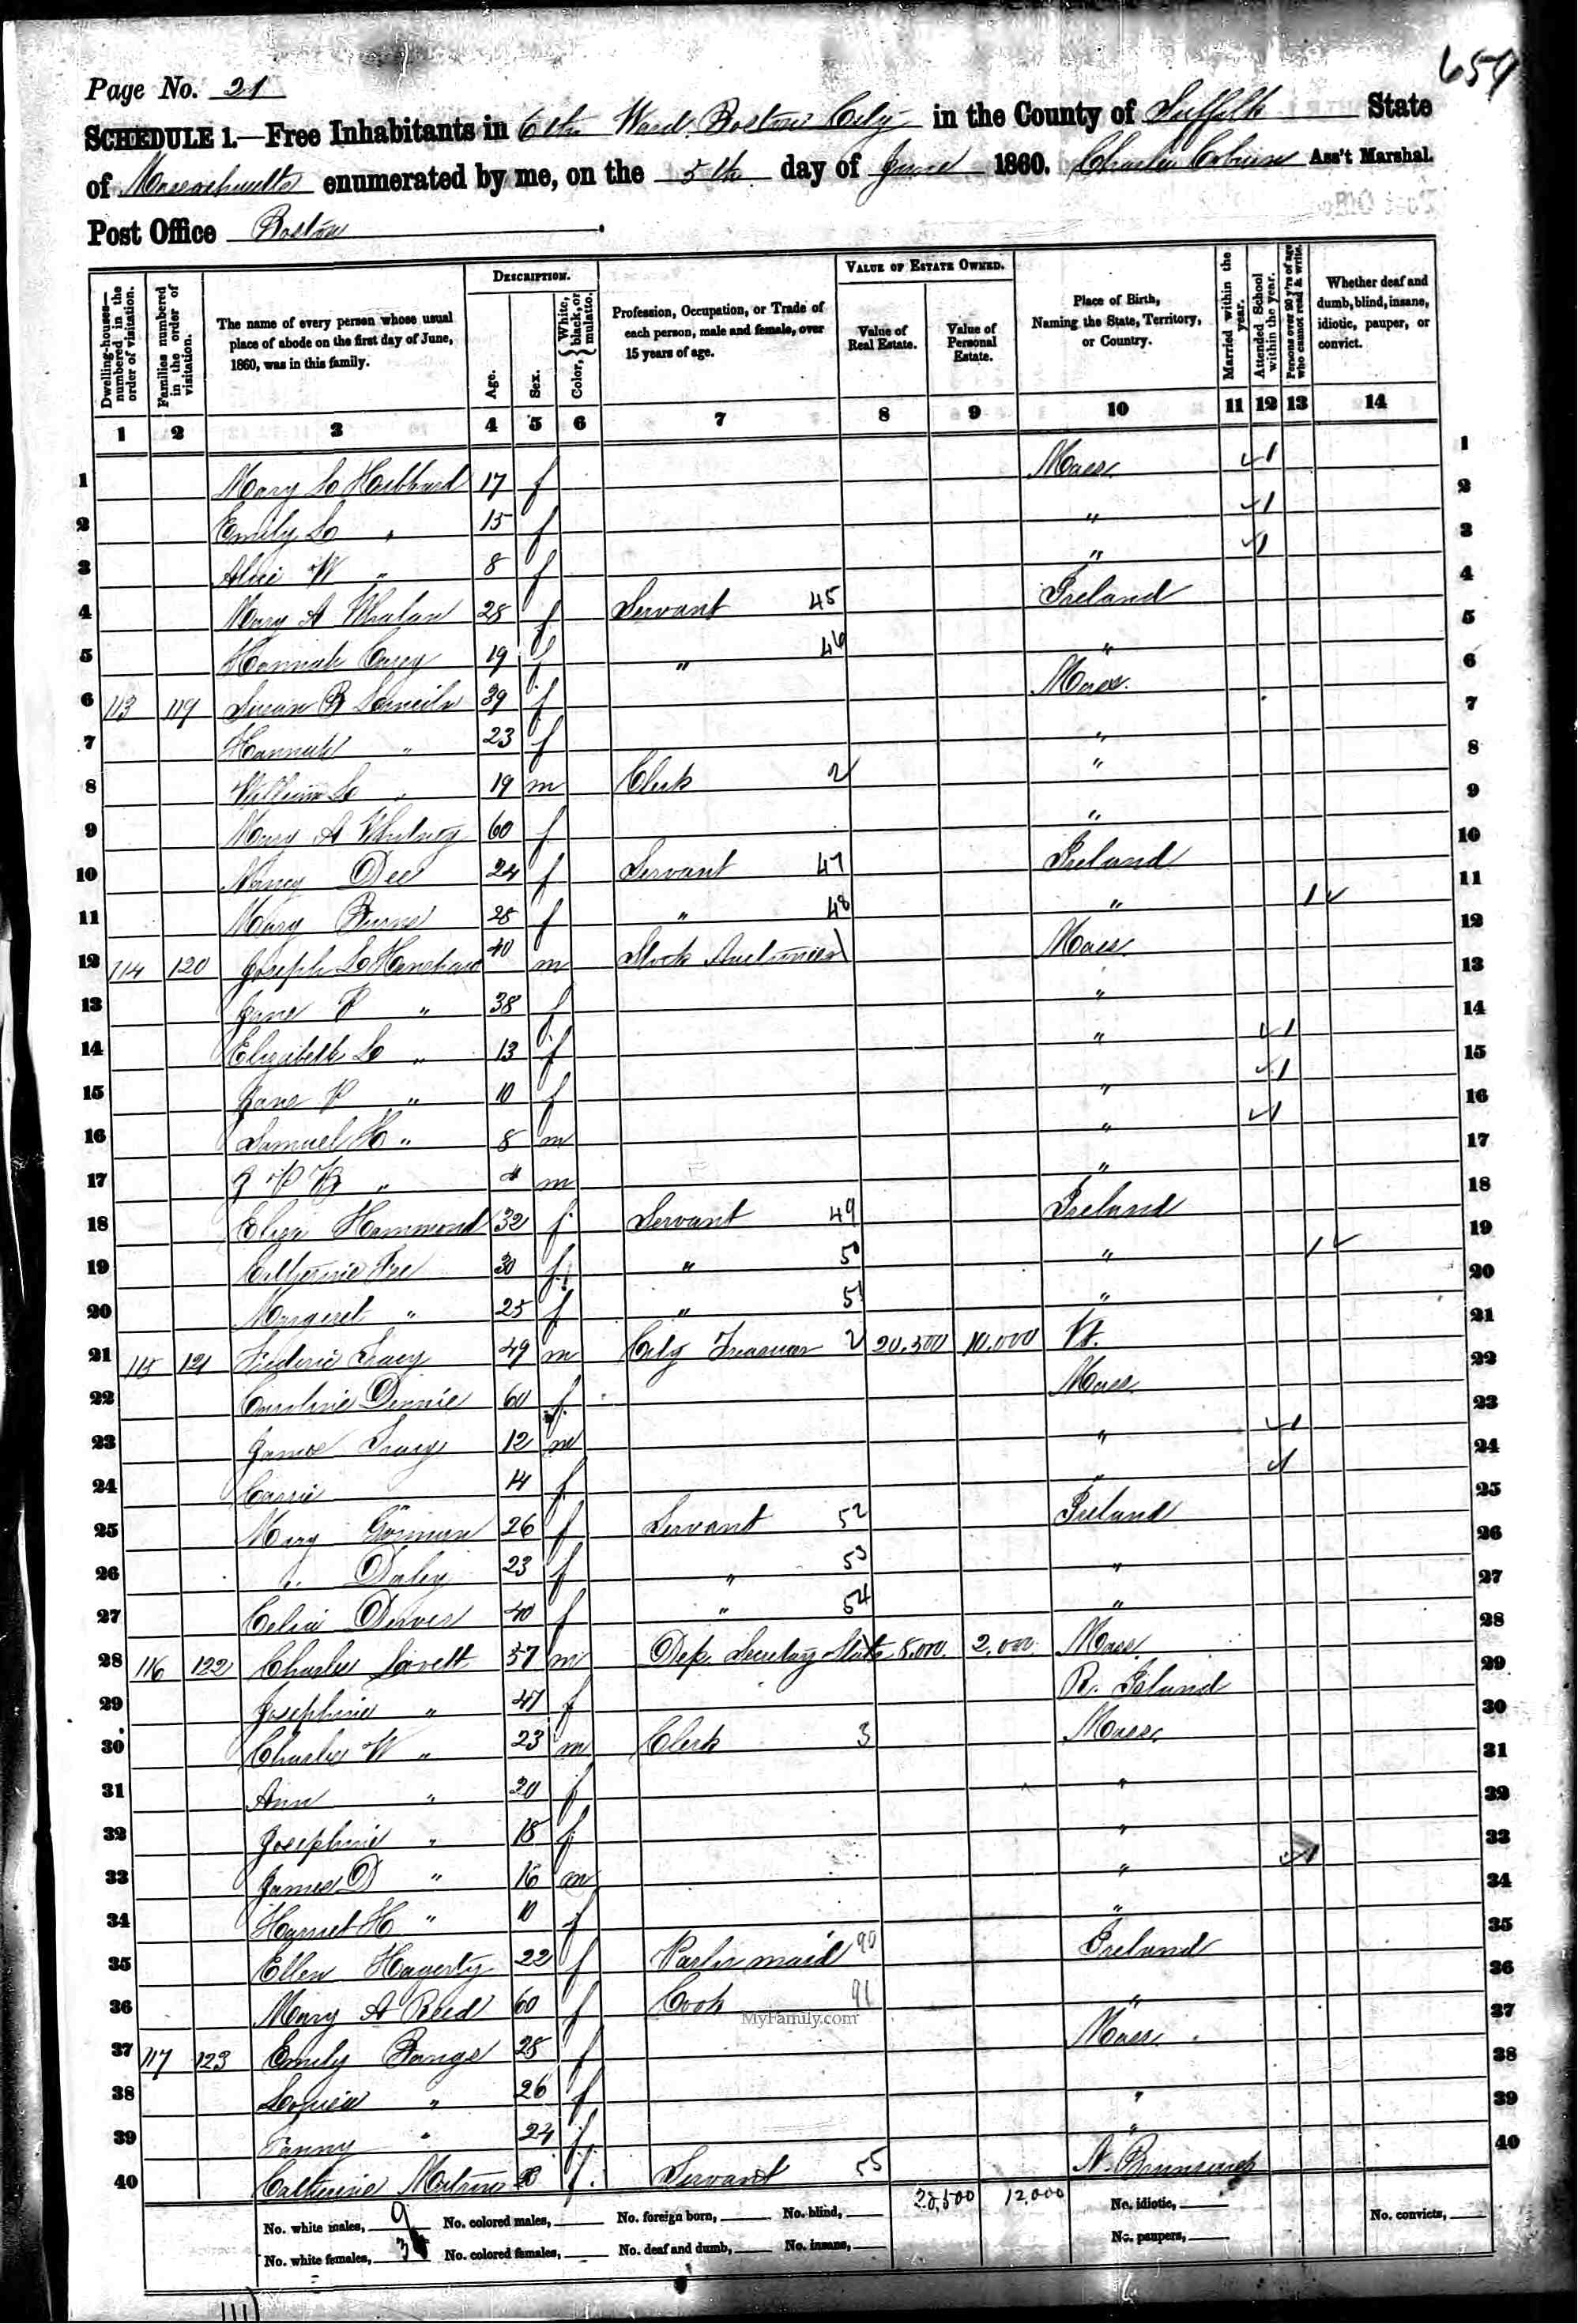 659
Page No. 21
SCHEDULE 1.—Free Inhabitants in 6th Ward Boston City in the County of Suffolk State
of Massachusetts enumerated by me, on the 5th day of June 1860. Charles Ass't Marshal.
Post Office Boston
Dwelling-houses—numbered in the order of visitation.
Families numbered in the order of visitation.
The name of every person whose usual place of abode on the first day of June, 1860, was in this family.
DESCRIPTION.
Age.
Sex.
Color, White, black, or mulatto.
Profession, Occupation, or Trade of each person, male and female, over 15 years of age.
VALUE OF ESTATE OWNED.
Value of Real Estate.
Value of Personal Estate.
Place of Birth, Naming the State, Territory, or Country.
Married within the year.
Attended School within the year.
Persons over 20 y'rs of age who cannot read & write.
Whether deaf and dumb, blind, insane, idiotic, pauper, or convict.
1 2 3 4 5 6 7 8 9 10 11 12 13 14
1 Mary L Hubbard 17 f Mass 1 1
2 Emily L " 15 f " 1 2
3 Alice W " 8 f " 1 3
4 Mary A Whalan 28 f Servant 45 Ireland 4
5 Hannah Casey 19 f " 46 " 5
6 113 119 Susan B 39 f Mass. 6
7 Hannah " 23 f " 7
8 William L " 19 m Clerk 2 " 8
9 Mary A Whitney 60 f " 9
10 Nancy Dee 24 f Servant 47 Ireland 10
11 Mary Burns 28 f " 48 " 1 11
12 114 120 Joseph L Henshaw 40 m Stock Auctioneer 1 Mass 12
13 Jane P " 38 f " 13
14 Elizabeth L " 13 f " 1 14
15 Jane P " 10 f " 1 15
16 Samuel H " 8 m " 1 16
17 J P B " 4 m " 17
18 Eliza Hammond 32 f Servant 49 Ireland 18
19 Catherine 30 f " 50 " 1 19
20 Margaret " 25 f " 51 " 20
21 115 121 Frederic Tracy 49 m City Treasurer 2 20,500 10,000 Vt. 21
22 Caroline Dennie 60 f Mass 22
23 James Tracy 12 m " 1 23
24 Carrie " 14 f " 1 24
25 Mary Gorman 26 f Servant 52 Ireland 25
26 " Daley 23 f " 53 " 26
27 Celia Dever 40 f " 54 " 27
28 116 122 Charles Lovett 57 m Dep. Secretary State 8,000. 2,000. Mass 28
29 Josephine " 47 f R. Island 29
30 Charles W " 23 m Clerk 3 Mass. 30
31 Ann " 20 f " 31
32 Josephine " 18 f " 32
33 James D " 16 m " 1 33
34 Harriet H " 10 f " 34
35 Ellen Hagerty 22 f Parlor maid 90 Ireland 35
36 Mary A Reed 60 f Cook 91 " 36
MyFamily.com
37 117 123 Emily Bangs 28 f Mass 37
38 Louisa " 26 f " 38
39 Fanny " 24 f " 39
40 Catherine f. Servant 55 N. Brunswick 40
28,500 12,000
No. white males, 9 No. colored males, No. foreign born, No. blind, No. idiotic, No. convicts,
No. white females, 3 No. colored females, No. deaf and dumb, No. insane, No. paupers,